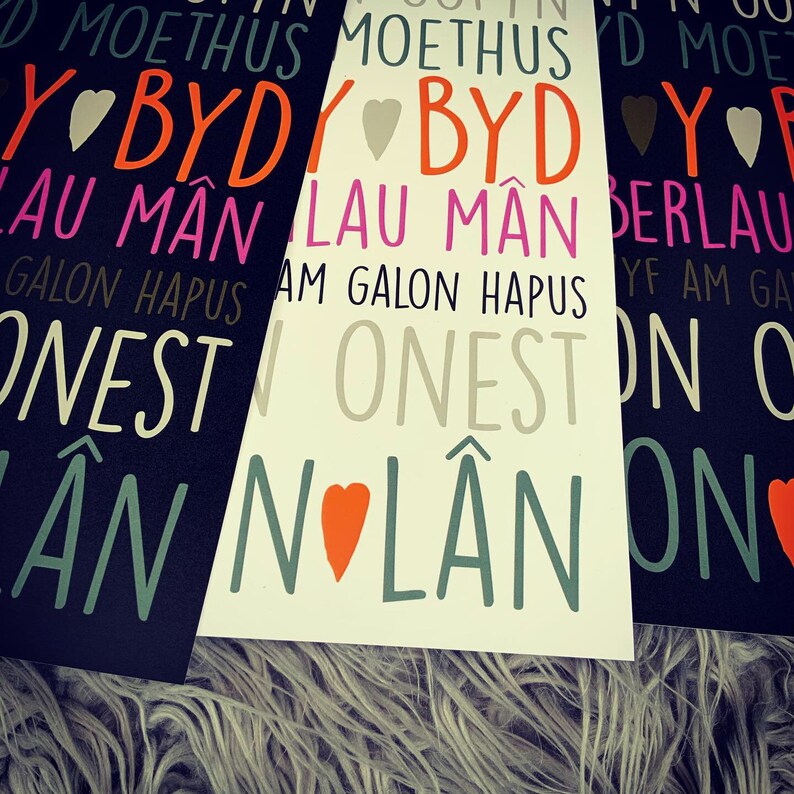 D MOETHUS
Y BYD
LAU MÂN
GALON HAPUS
ONEST
LÂN
MOETHUS
Y BYD
LAU MÂN
AM GALON HAPUS
N ONEST
N LÂN
D MOET
Y B
BERLAU
YF AM GA
ON O
ON